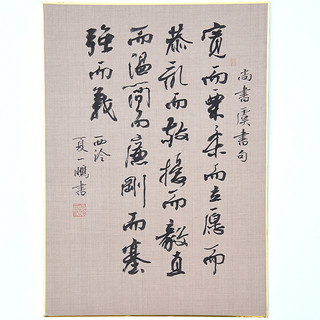 尚書虞書句
寬而栗柔而立愿而
恭亂而敬擾而毅直
而溫簡而廉剛而塞
強而義
西泠
夏一鵬書